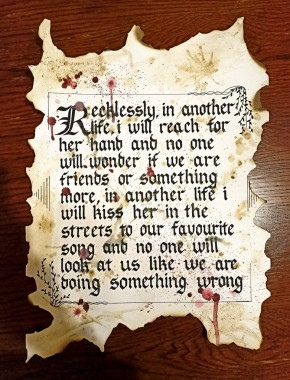 Recklessly, in another
life i will reach for
her hand and no one
will wonder if we are
friends or something
more, in another life i
will kiss her in the
streets to our favourite
song and no one will
look at us like we are
doing something wrong